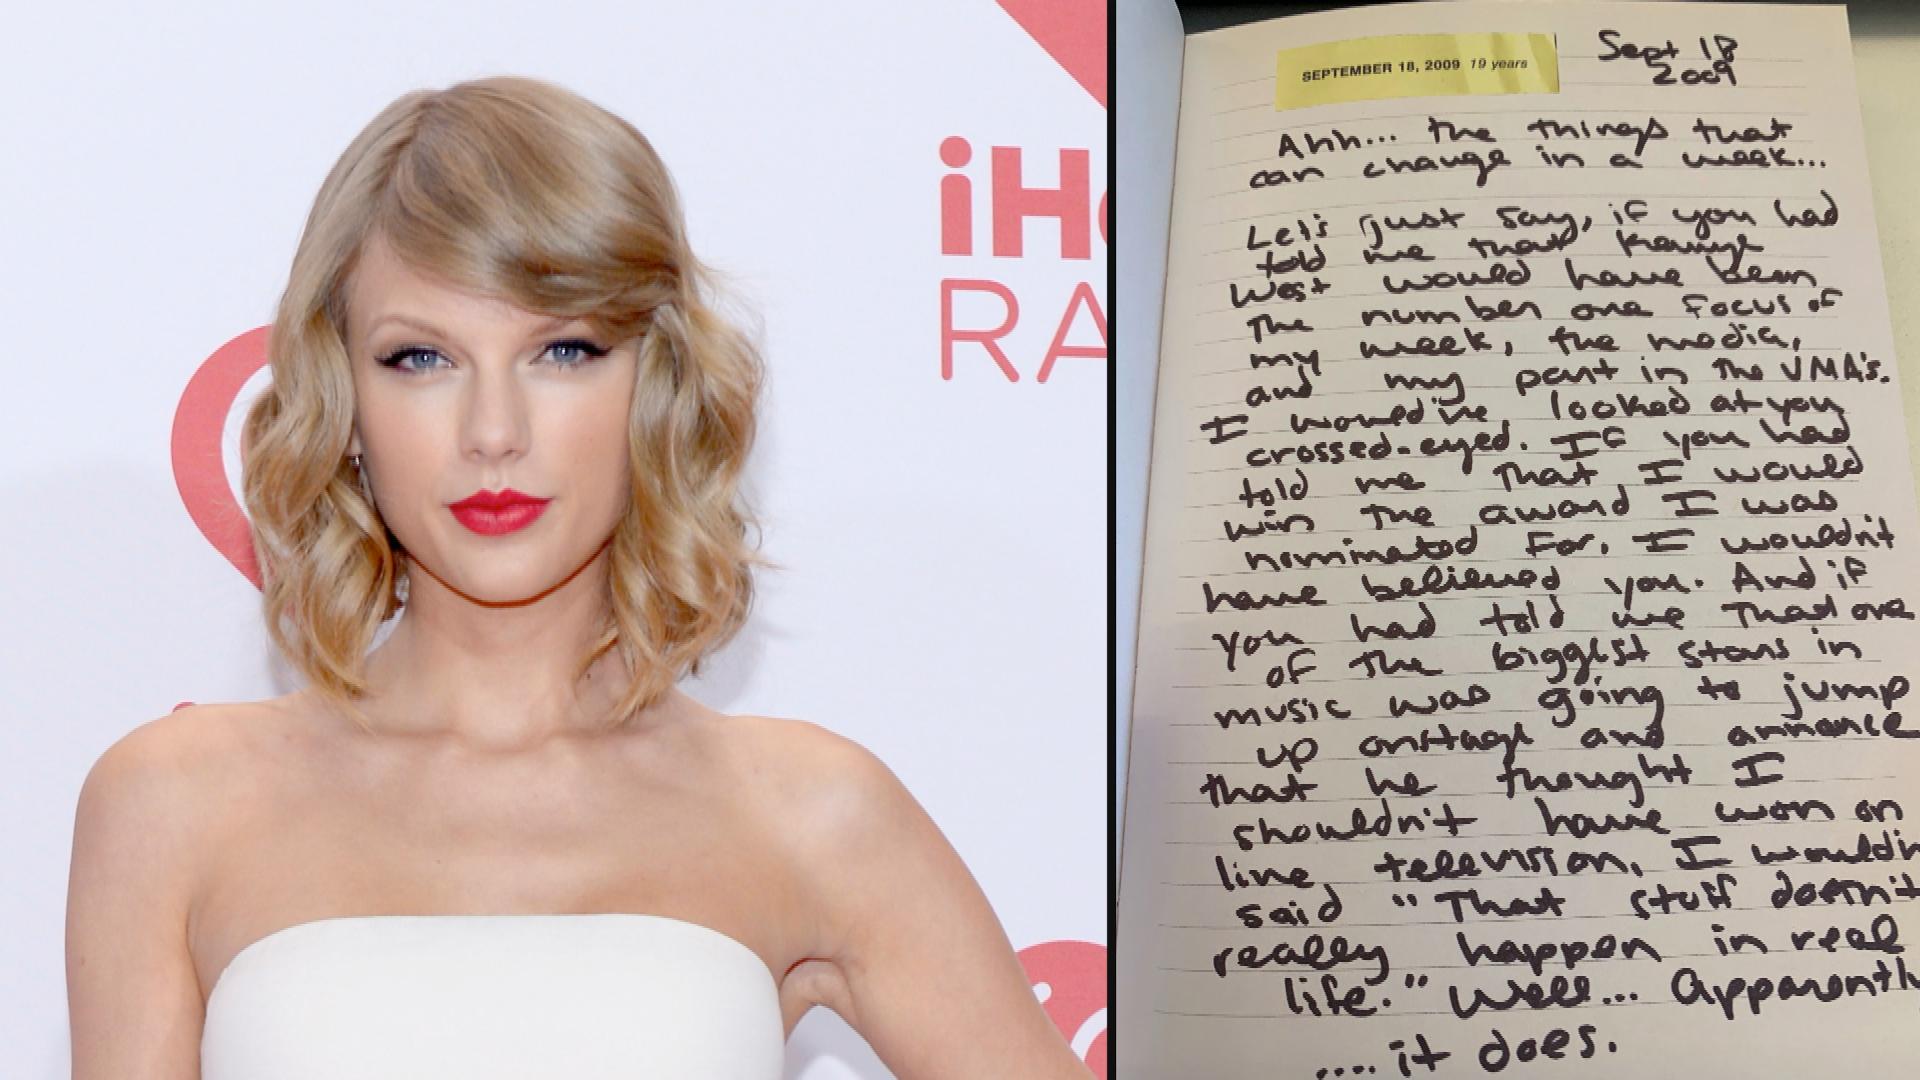 iH
RA
SEPTEMBER 18, 2009 19 years
Sept 18
2009
Ahh... the things that
can change in a week...
Let's just say, if you had
told me that Kanye
West would have been
the number one focus of
my week, the media,
and my part in the VMA's.
I would've looked at you
crossed-eyed. If you had
told me that I would
win the award I was
nominated for, I wouldn't
have believed you. And if
you had told me that one
of the biggest stars in
music was going to jump
up onstage and announce
that he thought I
shouldn't have won on
live television, I wouldn
said "That stuff doesn't
really happen in real
life." Well... Apparently
.... it does.